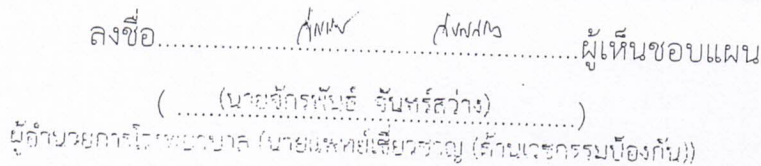 ลงชื่อ..............................................................ผู้เห็นชอบแผน
( ....(นายจักรพันธ์ จันทร์สว่าง)..............)
ผู้อำนวยการโรงพยาบาล (นายแพทย์เชี่ยวชาญ (ด้านเวชกรรมป้องกัน))